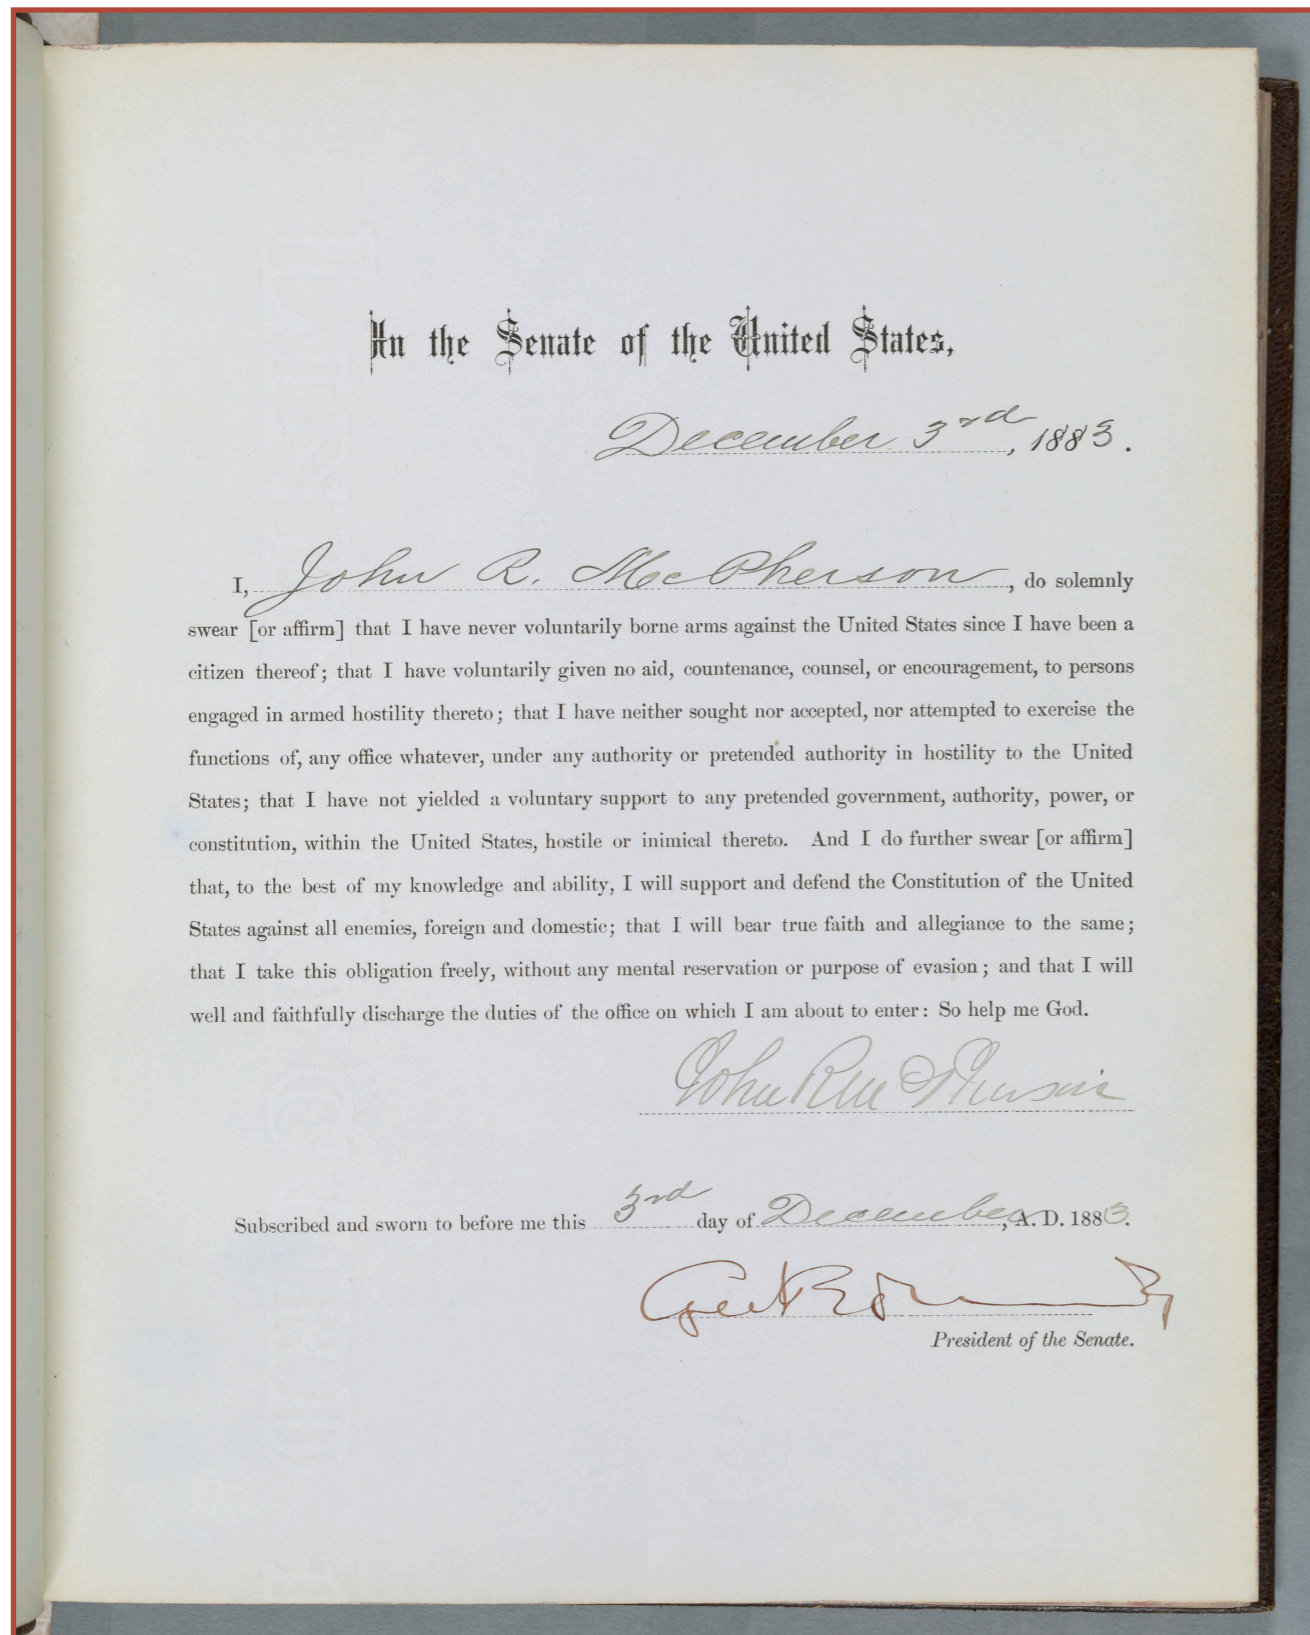 In the Senate of the United States,
December 3rd, 1883.
I, John R. McPherson, do solemnly
swear [or affirm] that I have never voluntarily borne arms against the United States since I have been a
citizen thereof; that I have voluntarily given no aid, countenance, counsel, or encouragement, to persons
engaged in armed hostility thereto; that I have neither sought nor accepted, nor attempted to exercise the
functions of, any office whatever, under any authority or pretended authority in hostility to the United
States; that I have not yielded a voluntary support to any pretended government, authority, power, or
constitution, within the United States, hostile or inimical thereto. And I do further swear [or affirm]
that, to the best of my knowledge and ability, I will support and defend the Constitution of the United
States against all enemies, foreign and domestic; that I will bear true faith and allegiance to the same;
that I take this obligation freely, without any mental reservation or purpose of evasion; and that I will
well and faithfully discharge the duties of the office on which I am about to enter: So help me God.
John R McPherson
Subscribed and sworn to before me this 3rd day of December, A. D. 1883.
Geo F Edmunds
President of the Senate.